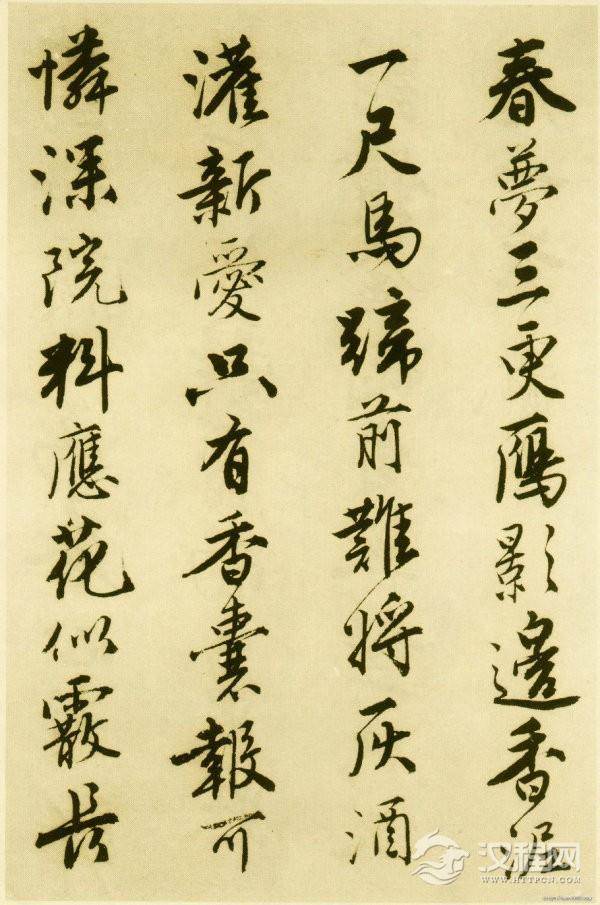 春夢三更鴈影邊香泥
一尺馬蹄前難將灰酒
灌新愛只有香囊報可
憐深院料應花似霰長
汉程网
HTTPCN.COM